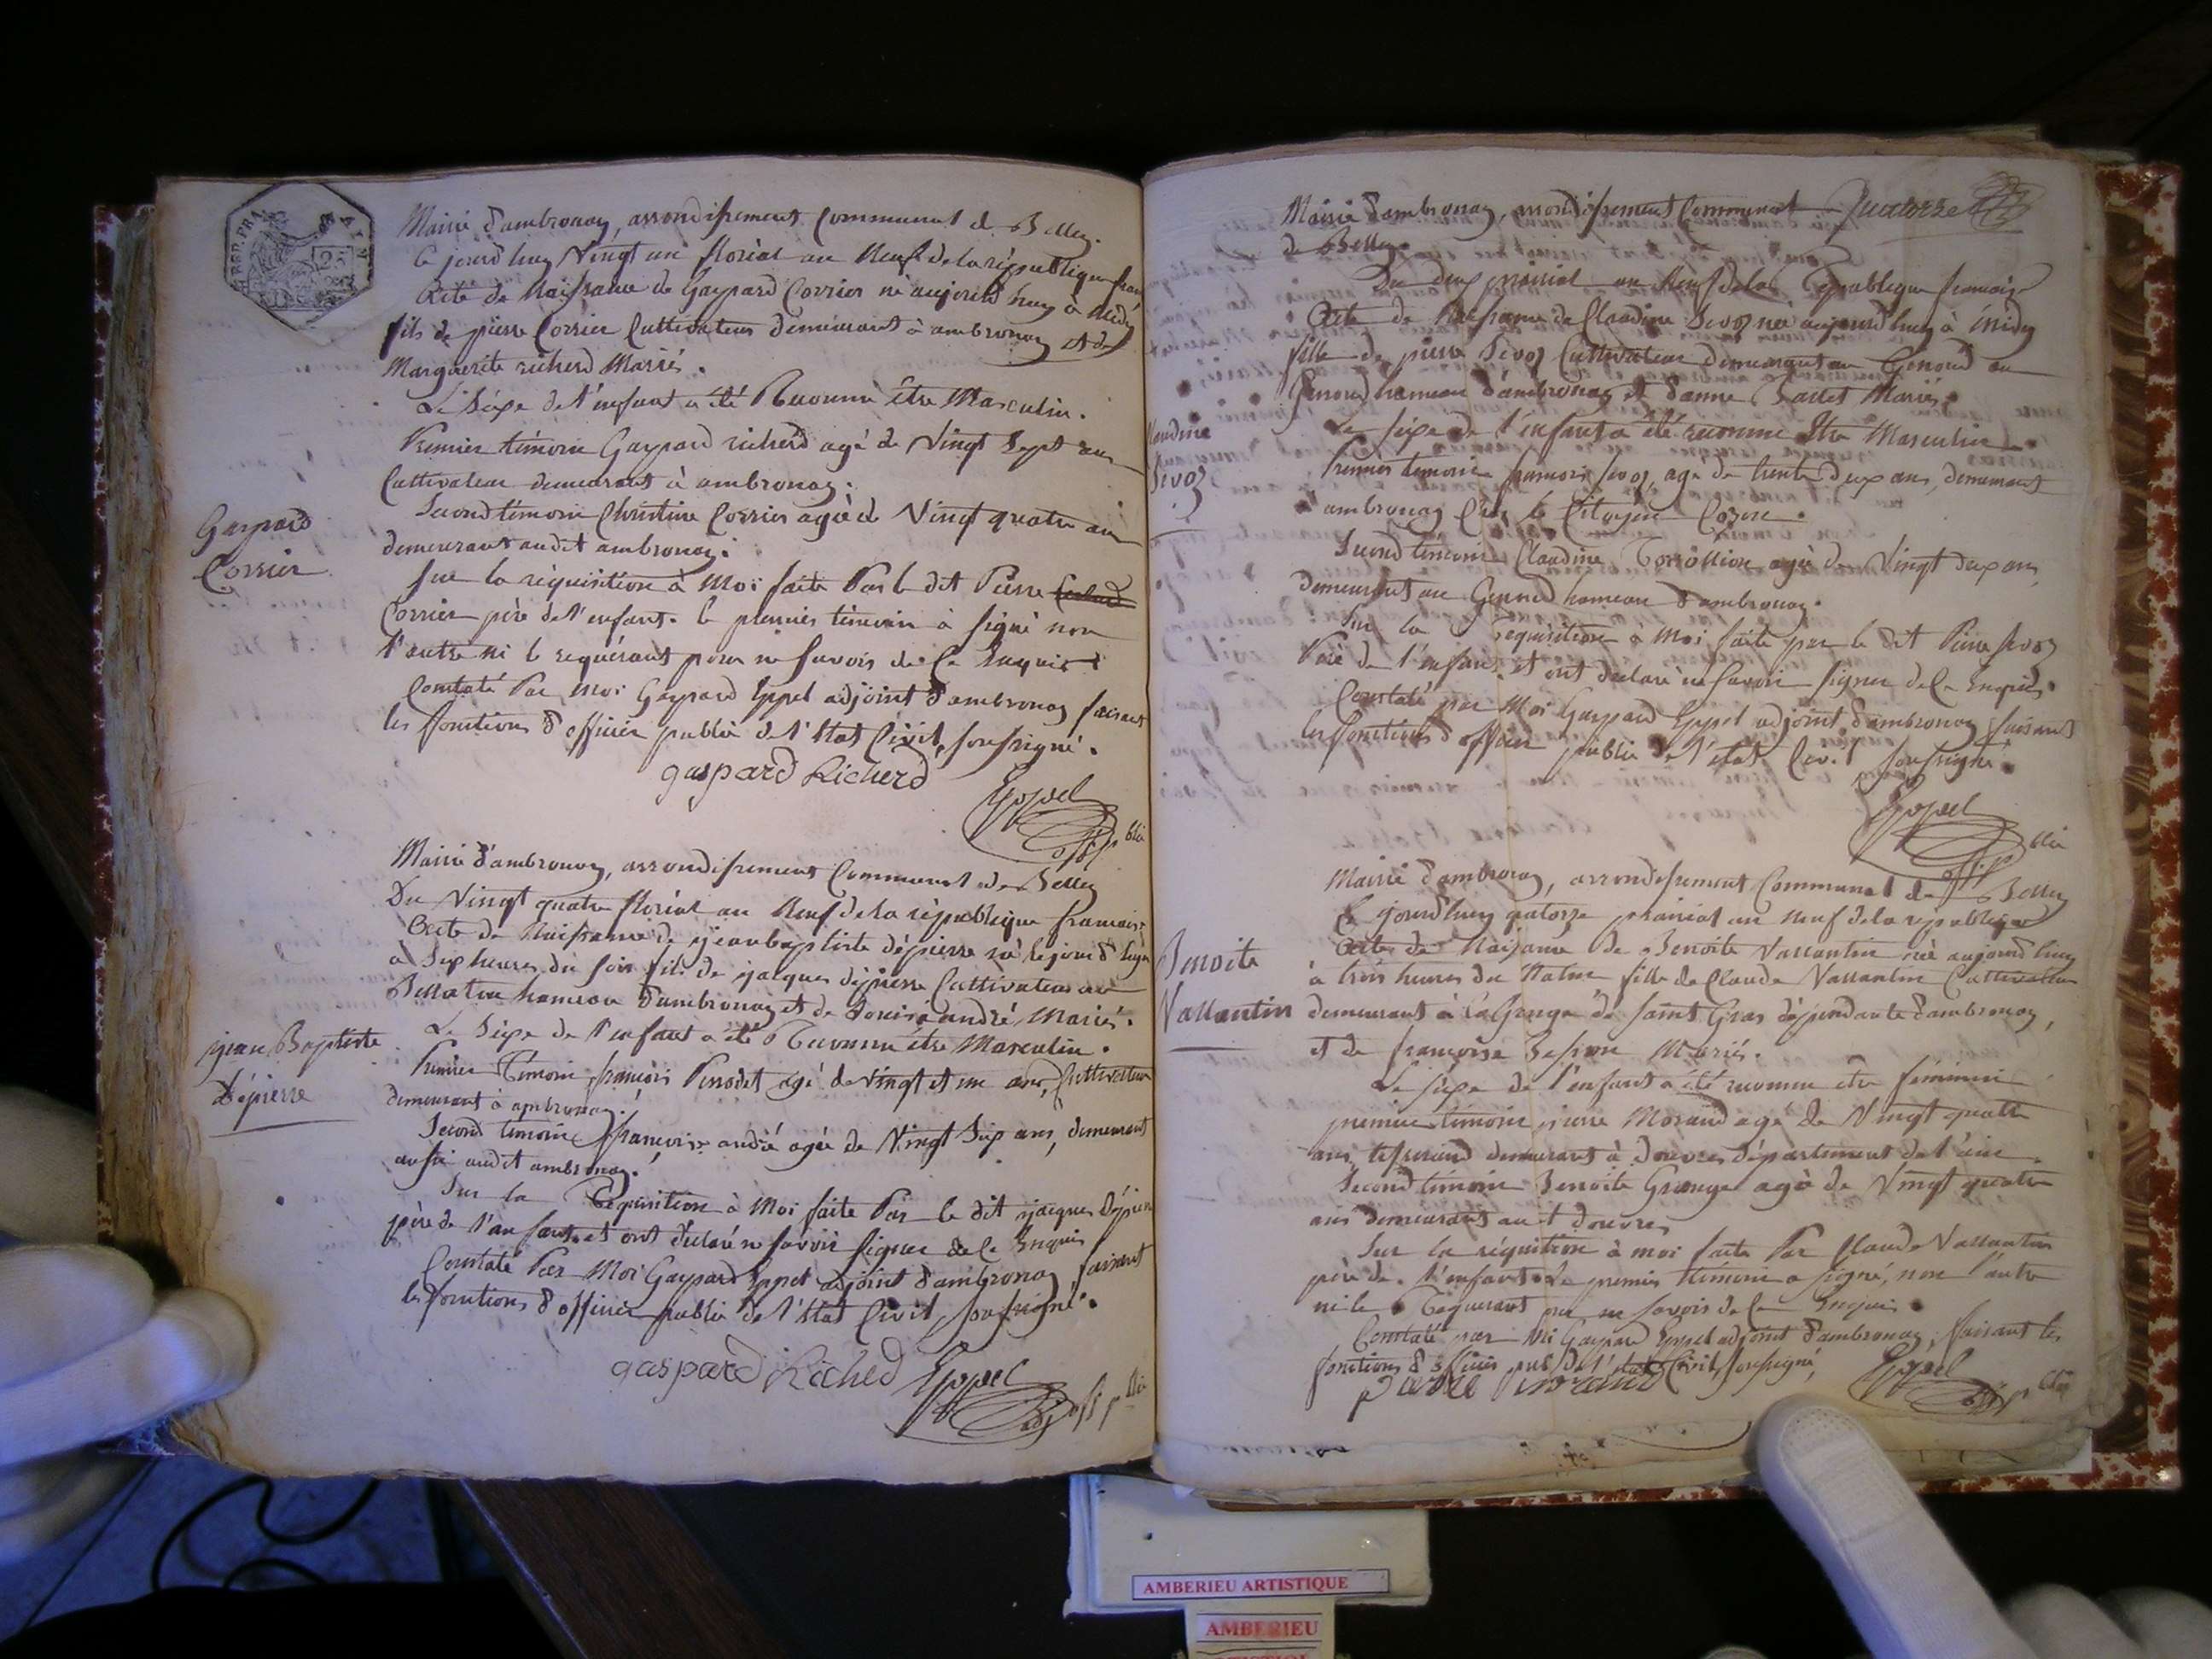 REP. FRA
AIN
25
Mairie d'ambronay, arrondissement Communal de Belley.
Ce jourd'huy Vingt un floréal an Neuf de la république fran
Acte de Naissance de Gaspard Corrier né aujourd'huy à Midy
fils de pierre Corrier Cultivateur demeurant à ambronay et de
Marguerite richerd Mariés.
Le Sexe de l'enfant a été Reconnu être Masculin.
Premier témoin Gaspard richerd agé de Vingt Sept ans
Cultivateur demeurant à ambronay.
Second témoin Christine Corrier agée de Vingt quatre ans
demeurant audit ambronay.
Gaspard
Corrier
Sur la réquisition à Moi faite Par le dit Pierre
Corrier père de l'enfant. le premier témoin à signé non
l'autre ni le requérant pour ne savoir de Ce Enquis
Constaté Par Moi Gaspard Eppel adjoint d'ambronay faisant
les fonctions d'officier public de l'Etat Civil, soussigné.
gaspard Richerd
Eppel
off p blic
Mairie d'ambronay, arrondissement Communal de Belley
Du Vingt quatre floréal an Neuf de la république francaise
Acte de Naissance de jean baptiste dépierre né le jour d'huy
à Six heures du soir fils de jacques dépierre Cultivateur au
Bellatru hameau d'ambronay et de Louise andré Mariés.
Le Sexe de l'enfant a été Reconnu être Masculin.
jean Baptiste
dépierre
Premier Témoin françois Penodet agé de vingt et un ans, Cultivateur
demeurant à ambronay.
Second témoin françoise andré agée de Vingt Six ans, demeurant
aussi audit ambronay.
Sur la Réquisition à Moi faite Par le dit jacques Dépierre
père de l'enfant et ont déclaré ne savoir signer de Ce Enquis
Constaté Par Moi Gaspard Eppel adjoint d'ambronay faisant
les fonctions d'officier public de l'Etat Civil, soussigné.
gaspard Richerd Eppel
adj off p blic
Mairie d'ambronay, arrondissement Communal Quatorze
de Belley.
Du deux prairial an Neuf de la République francaise
Acte de Naissance de Claudine Sevoz née aujourd'huy à Midy
fille de pierre Sevoz Cultivateur demeurant au Genoud au
Genoud hameau d'ambronay et d'anne Mariés.
Claudine
Sevoz
Le sexe de l'enfant a été reconnu Etre Masculin
Premier témoin francois Sevoz, agé de trente deux ans, demeurant
à ambronay Chez le Citoyen Cozon.
Second témoin Claudine agée de Vingt deux ans
demeurant au Genoud hameau d'ambronay.
Sur la Requisition à Moi faite par le dit Pierre Sevoz
Père de l'enfant et ont déclaré ne Savoir signer de Ce enquis.
Constaté par Moi Gaspard Eppel adjoint d'ambronay faisant
les fonctions d'officier public de l'état Civil soussigné.
Eppel
off p blic
Mairie d'ambronay, arrondissement Communal de Belley
Ce jourd'huy quatorze prairial an neuf de la république
Acte de Naissance de Benoite Vallantin née aujourd'huy
Benoite
Vallantin
à trois heures du Matin, fille de Claude Vallantin Cultivateur
demeurant à la Grange de Saint Gras dépendante d'ambronay,
et de françoise Mariés.
Le sexe de l'enfant a été reconnu etre féminin
premier témoin pierre Morand agé de Vingt quatre
ans, tisserand demeurant à Douvres département de l'ain.
Second témoin Benoite Grange agée de Vingt quatre
ans demeurant audit Douvres
Sur la réquisition à moi faite Par Claude Vallantin
père de l'enfant. Le premier témoin a signé, non l'autre
ni le Requerant pour ne savoir de Ce Enquis.
Constaté par Moi Gaspard Eppel adjoint d'ambronay, faisant les
fonctions d'officier pub. de l'etat Civil, soussigné,
pierre morand
Eppel
off p blic
AMBERIEU ARTISTIQUE
AMBERIEU